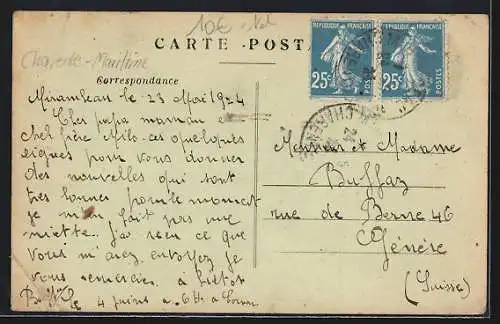 10€ Nel
Charente-Maritime
CARTE POST
Correspondance
REPUBLIQUE FRANÇAISE
25c
POSTES
REPUBLIQUE FRANÇAISE
25c
POSTES
Mirambeau le 23 Mai 1924
Cher papa maman et
cher frère Milo. ces quelques
lignes pour vous donner
des nouvelles qui sont
très bonnes pour le moment
je m'en fait pas une
miette. J'ai reçu ce que
vous m'avez envoyez je
vous remercie, à bientot
le 4 juins a 6h
Monsieur et Madame
Buffaz
rue de Berne 46
Génève
(Suisse)